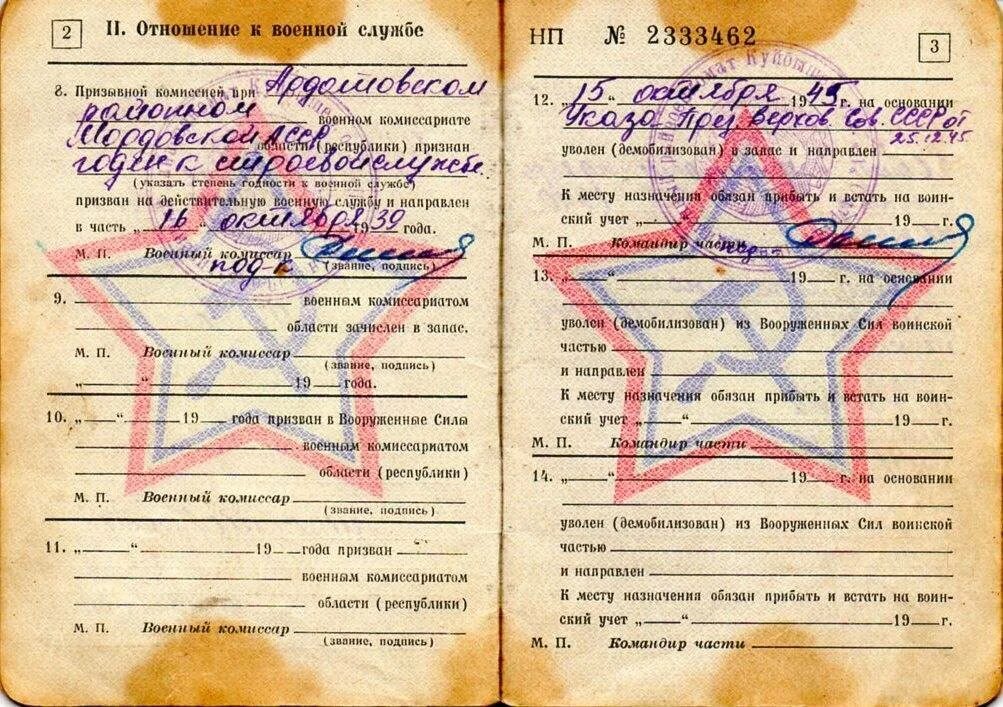 2
II. Отношение к военной службе
8. Призывной комиссией при Ардатовском
районном военном комиссариате
Мордовской АССР области (республики) признан
годен к строевой службе
(указать степень годности к военной службе)
призван на действительную военную службу и направлен
в часть „16“ октября 1939 года.
М. П. Военный комиссар
подк (звание, подпись)
9. военным комиссариатом
области зачислен в запас.
М. П. Военный комиссар
(звание, подпись)
„ “ 19 года.
10. „ “ 19 года призван в Вооруженные Силы
военным комиссариатом
области (республики)
М. П. Военный комиссар
(звание, подпись)
11. „ “ 19 года призван
военным комиссариатом
области (республики)
М. П. Военный комиссар
(звание, подпись)
НП № 2333462
3
12. „15“ октября 1945 г. на основании
Указа През Верхов Сов. СССР от
25.12.45.
уволен (демобилизован) в запас и направлен
К месту назначения обязан прибыть и встать на воин-
ский учет „ “ 19 г.
М. П. Командир части
13. „ “ 19 г. на основании
уволен (демобилизован) из Вооруженных Сил воинской
частью
и направлен
К месту назначения обязан прибыть и встать на воин-
ский учет „ “ 19 г.
М. П. Командир части
14. „ “ 19 г. на основании
уволен (демобилизован) из Вооруженных Сил воинской
частью
и направлен
К месту назначения обязан прибыть и встать на воин-
ский учет „ “ 19 г.
М. П. Командир части